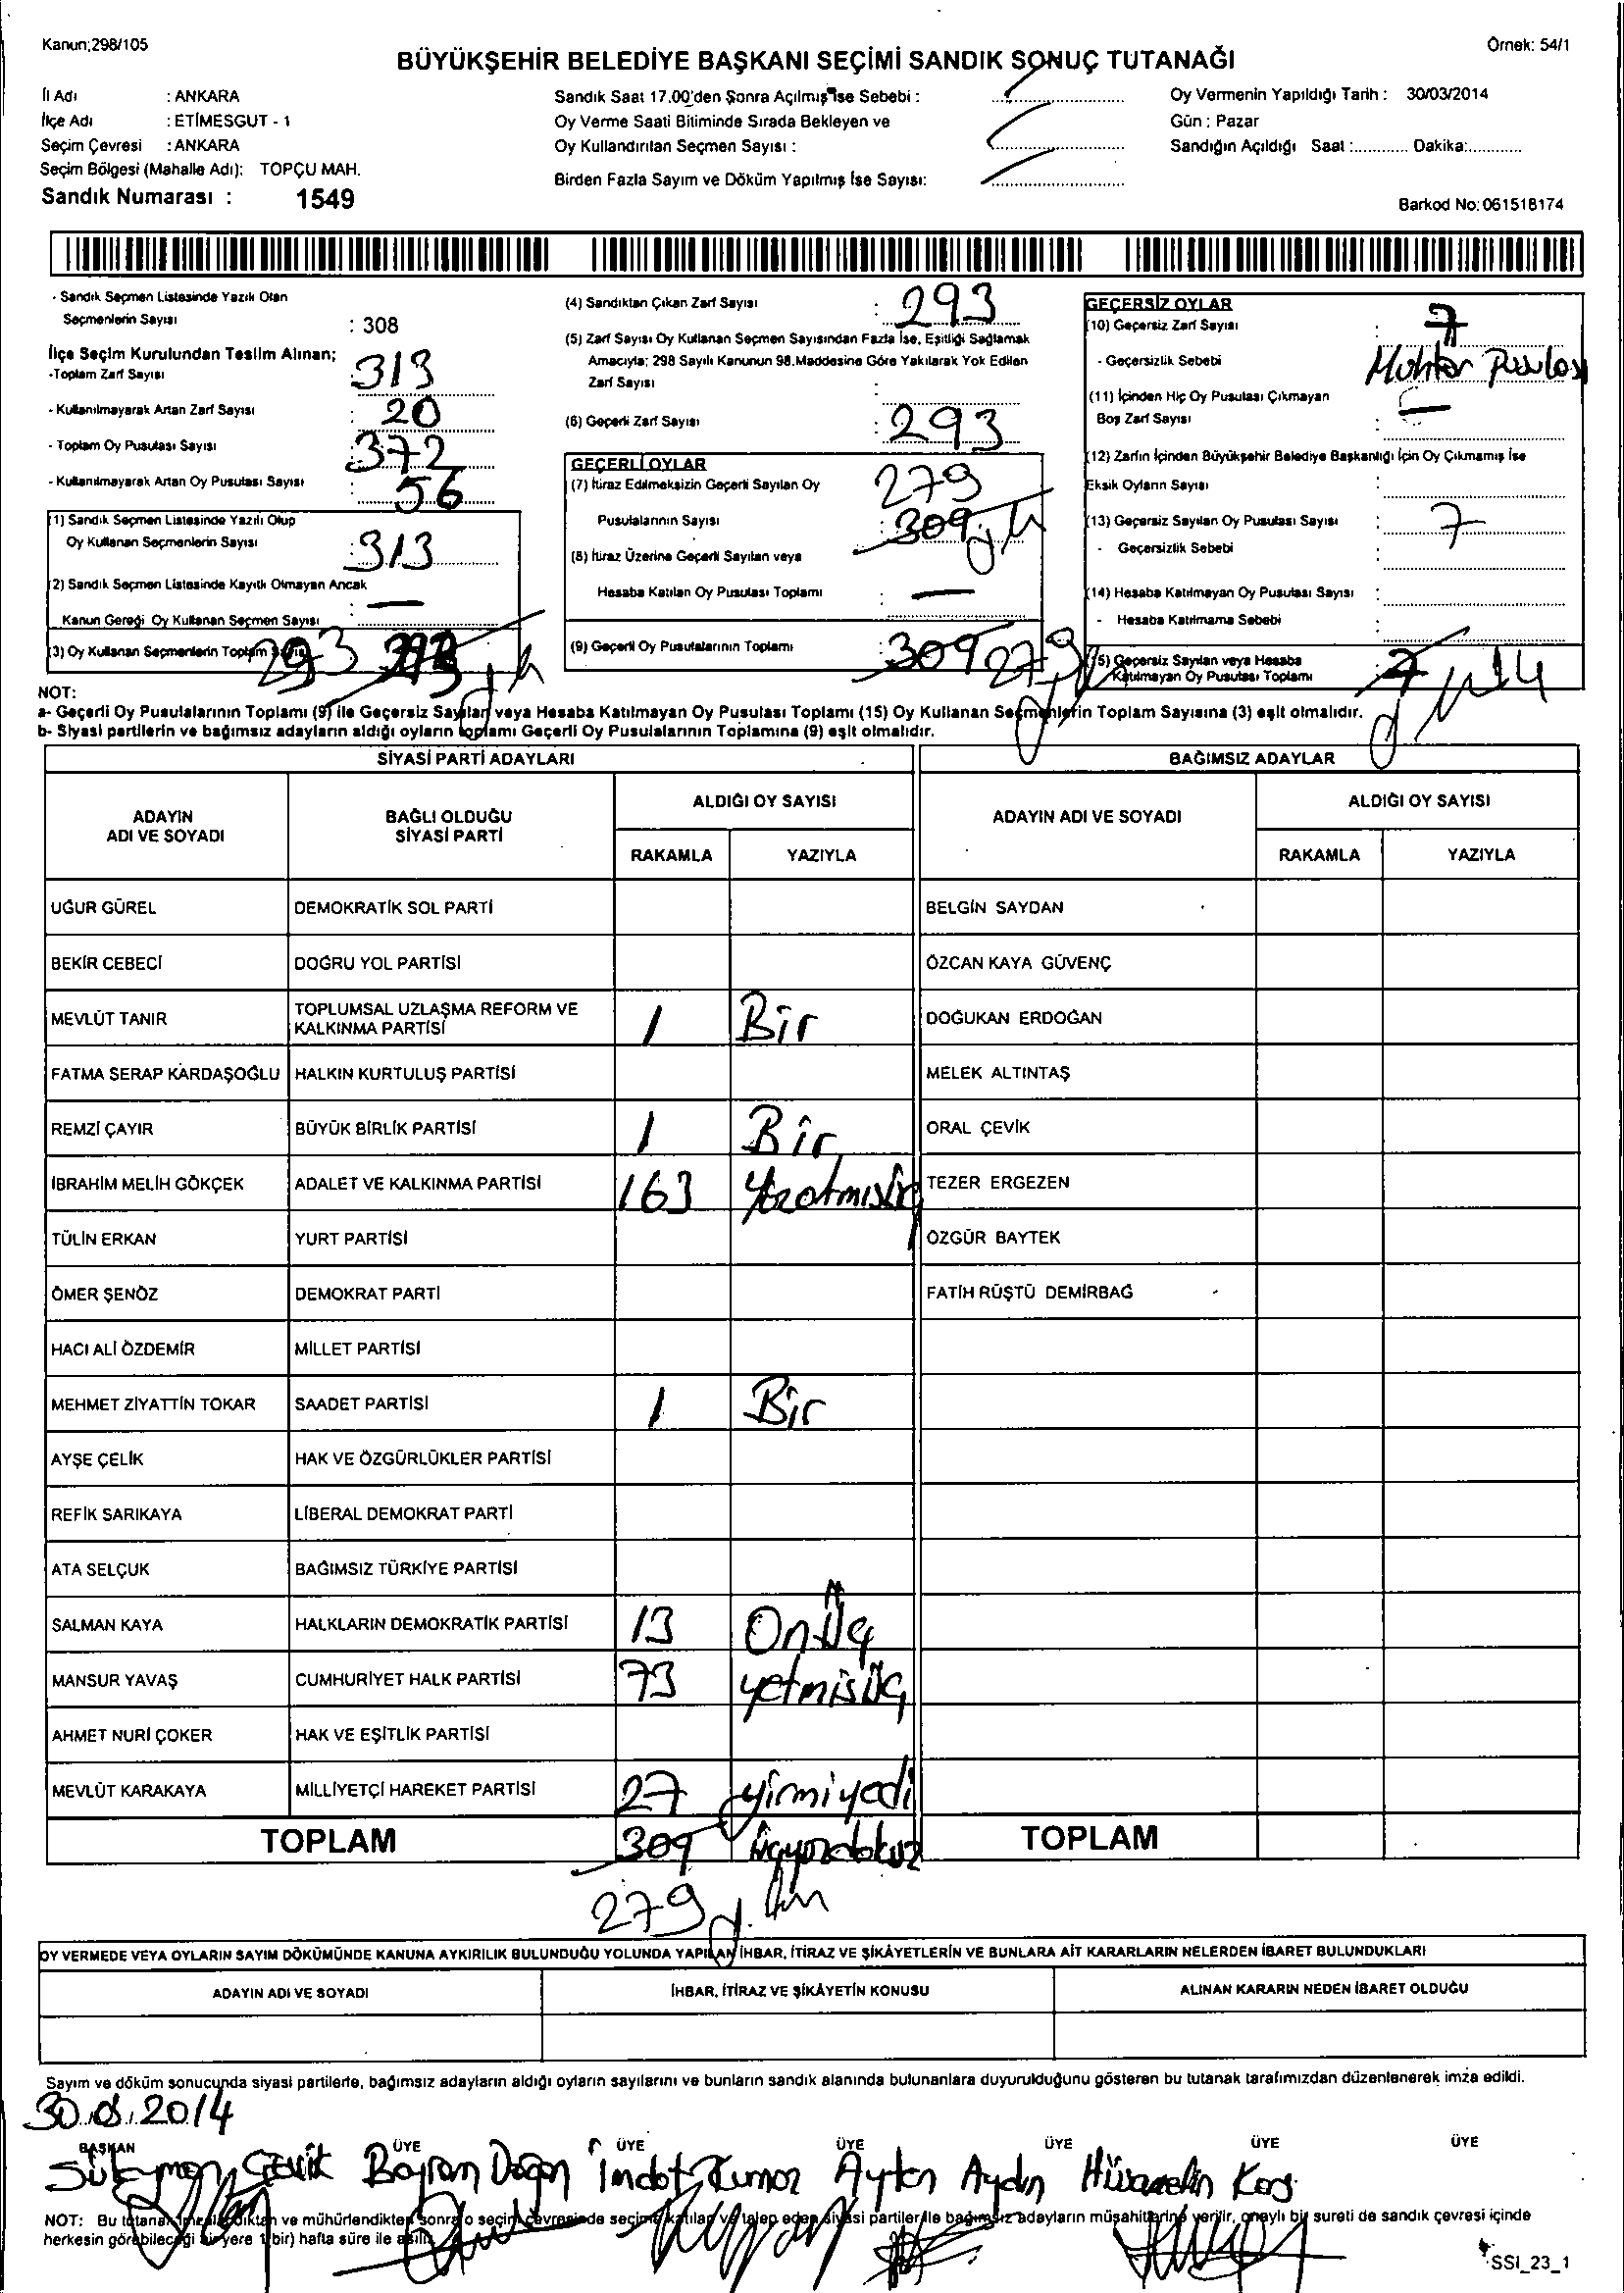 Kanun;298/105
Örnek: 54/1
BÜYÜKŞEHİR BELEDİYE BAŞKANI SEÇİMİ SANDIK SONUÇ TUTANAĞI
İl Adı : ANKARA
İlçe Adı : ETİMESGUT - 1
Seçim Çevresi : ANKARA
Seçim Bölgesi (Mahalle Adı): TOPÇU MAH.
Sandık Numarası : 1549
Sandık Saat 17.00'den Sonra Açılmış İse Sebebi :
Oy Verme Saati Bitiminde Sırada Bekleyen ve
Oy Kullandırılan Seçmen Sayısı :
Birden Fazla Sayım ve Döküm Yapılmış İse Sayısı:
Oy Vermenin Yapıldığı Tarih : 30/03/2014
Gün : Pazar
Sandığın Açıldığı Saat :............ Dakika:............
Barkod No: 061518174
- Sandık Seçmen Listesinde Yazılı Olan
Seçmenlerin Sayısı : 308
İlçe Seçim Kurulundan Teslim Alınan;
-Toplam Zarf Sayısı : 313
- Kullanılmayarak Artan Zarf Sayısı : 20
- Toplam Oy Pusulası Sayısı : 372
- Kullanılmayarak Artan Oy Pusulası Sayısı : 56
(1) Sandık Seçmen Listesinde Yazılı Olup
Oy Kullanan Seçmenlerin Sayısı : 313
(2) Sandık Seçmen Listesinde Kayıtlı Olmayan Ancak
Kanun Gereği Oy Kullanan Seçmen Sayısı : —
(3) Oy Kullanan Seçmenlerin Toplam Sayısı 293
(4) Sandıktan Çıkan Zarf Sayısı : 293
(5) Zarf Sayısı Oy Kullanan Seçmen Sayısından Fazla İse, Eşitliği Sağlamak
Amacıyla; 298 Sayılı Kanunun 98.Maddesine Göre Yakılarak Yok Edilen
Zarf Sayısı :
(6) Geçerli Zarf Sayısı : 293
GEÇERLİ OYLAR
(7) İtiraz Edilmeksizin Geçerli Sayılan Oy 279
Pusulalarının Sayısı : 309
(8) İtiraz Üzerine Geçerli Sayılan veya
Hesaba Katılan Oy Pusulası Toplamı : —
(9) Geçerli Oy Pusulalarının Toplamı : 309 279
GEÇERSİZ OYLAR
(10) Geçersiz Zarf Sayısı : 7
- Geçersizlik Sebebi : Muhtar Pusulası
(11) İçinden Hiç Oy Pusulası Çıkmayan
Boş Zarf Sayısı : —
(12) Zarfın İçinden Büyükşehir Belediye Başkanlığı İçin Oy Çıkmamış İse
Eksik Oyların Sayısı :
(13) Geçersiz Sayılan Oy Pusulası Sayısı : 7
- Geçersizlik Sebebi :
(14) Hesaba Katılmayan Oy Pusulası Sayısı :
- Hesaba Katılmama Sebebi :
(15) Geçersiz Sayılan veya Hesaba
Katılmayan Oy Pusulası Toplamı : 7 14
NOT:
a- Geçerli Oy Pusulalarının Toplamı (9) ile Geçersiz Sayılan veya Hesaba Katılmayan Oy Pusulası Toplamı (15) Oy Kullanan Seçmenlerin Toplam Sayısına (3) eşit olmalıdır.
b- Siyasi partilerin ve bağımsız adayların aldığı oyların toplamı Geçerli Oy Pusulalarının Toplamına (9) eşit olmalıdır.
SİYASİ PARTİ ADAYLARI
BAĞIMSIZ ADAYLAR
ADAYIN ADI VE SOYADI
BAĞLI OLDUĞU SİYASİ PARTİ
ALDIĞI OY SAYISI
RAKAMLA YAZIYLA
ADAYIN ADI VE SOYADI
ALDIĞI OY SAYISI
RAKAMLA YAZIYLA
UĞUR GÜREL DEMOKRATİK SOL PARTİ BELGİN SAYDAN
BEKİR CEBECİ DOĞRU YOL PARTİSİ ÖZCAN KAYA GÜVENÇ
MEVLÜT TANIR TOPLUMSAL UZLAŞMA REFORM VE KALKINMA PARTİSİ 1 Bir DOĞUKAN ERDOĞAN
FATMA SERAP KARDAŞOĞLU HALKIN KURTULUŞ PARTİSİ MELEK ALTINTAŞ
REMZİ ÇAYIR BÜYÜK BİRLİK PARTİSİ 1 Bir ORAL ÇEVİK
İBRAHİM MELİH GÖKÇEK ADALET VE KALKINMA PARTİSİ 163 TEZER ERGEZEN
TÜLİN ERKAN YURT PARTİSİ ÖZGÜR BAYTEK
ÖMER ŞENÖZ DEMOKRAT PARTİ FATİH RÜŞTÜ DEMİRBAĞ
HACI ALİ ÖZDEMİR MİLLET PARTİSİ
MEHMET ZİYATTİN TOKAR SAADET PARTİSİ 1 Bir
AYŞE ÇELİK HAK VE ÖZGÜRLÜKLER PARTİSİ
REFİK SARIKAYA LİBERAL DEMOKRAT PARTİ
ATA SELÇUK BAĞIMSIZ TÜRKİYE PARTİSİ
SALMAN KAYA HALKLARIN DEMOKRATİK PARTİSİ 13 OnÜç
MANSUR YAVAŞ CUMHURİYET HALK PARTİSİ 73 yetmisüç
AHMET NURİ ÇOKER HAK VE EŞİTLİK PARTİSİ
MEVLÜT KARAKAYA MİLLİYETÇİ HAREKET PARTİSİ 27 yirmiyedi
TOPLAM 309 üçyüzdokuz TOPLAM
279
OY VERMEDE VEYA OYLARIN SAYIM DÖKÜMÜNDE KANUNA AYKIRILIK BULUNDUĞU YOLUNDA YAPILAN İHBAR, İTİRAZ VE ŞİKÂYETLERİN VE BUNLARA AİT KARARLARIN NELERDEN İBARET BULUNDUKLARI
ADAYIN ADI VE SOYADI İHBAR, İTİRAZ VE ŞİKÂYETİN KONUSU ALINAN KARARIN NEDEN İBARET OLDUĞU
Sayım ve döküm sonucunda siyasi partilerle, bağımsız adayların aldığı oyların sayılarını ve bunların sandık alanında bulunanlara duyurulduğunu gösteren bu tutanak tarafımızdan düzenlenerek imza edildi.
2014
BAŞKAN ÜYE ÜYE ÜYE ÜYE ÜYE ÜYE
Süleyman Çevik Bayram Doğan Ayten Aydın
NOT: Bu tutanak ve mühürlendikten sonra o seçim çevresinde seçime katılan ve talep eden siyasi partiler ile bağımsız adayların müşahitlerine verilir, onaylı bir sureti de sandık çevresi içinde
herkesin görebileceği bir yere 1(bir) hafta süre ile asılır.
SSI_23_1